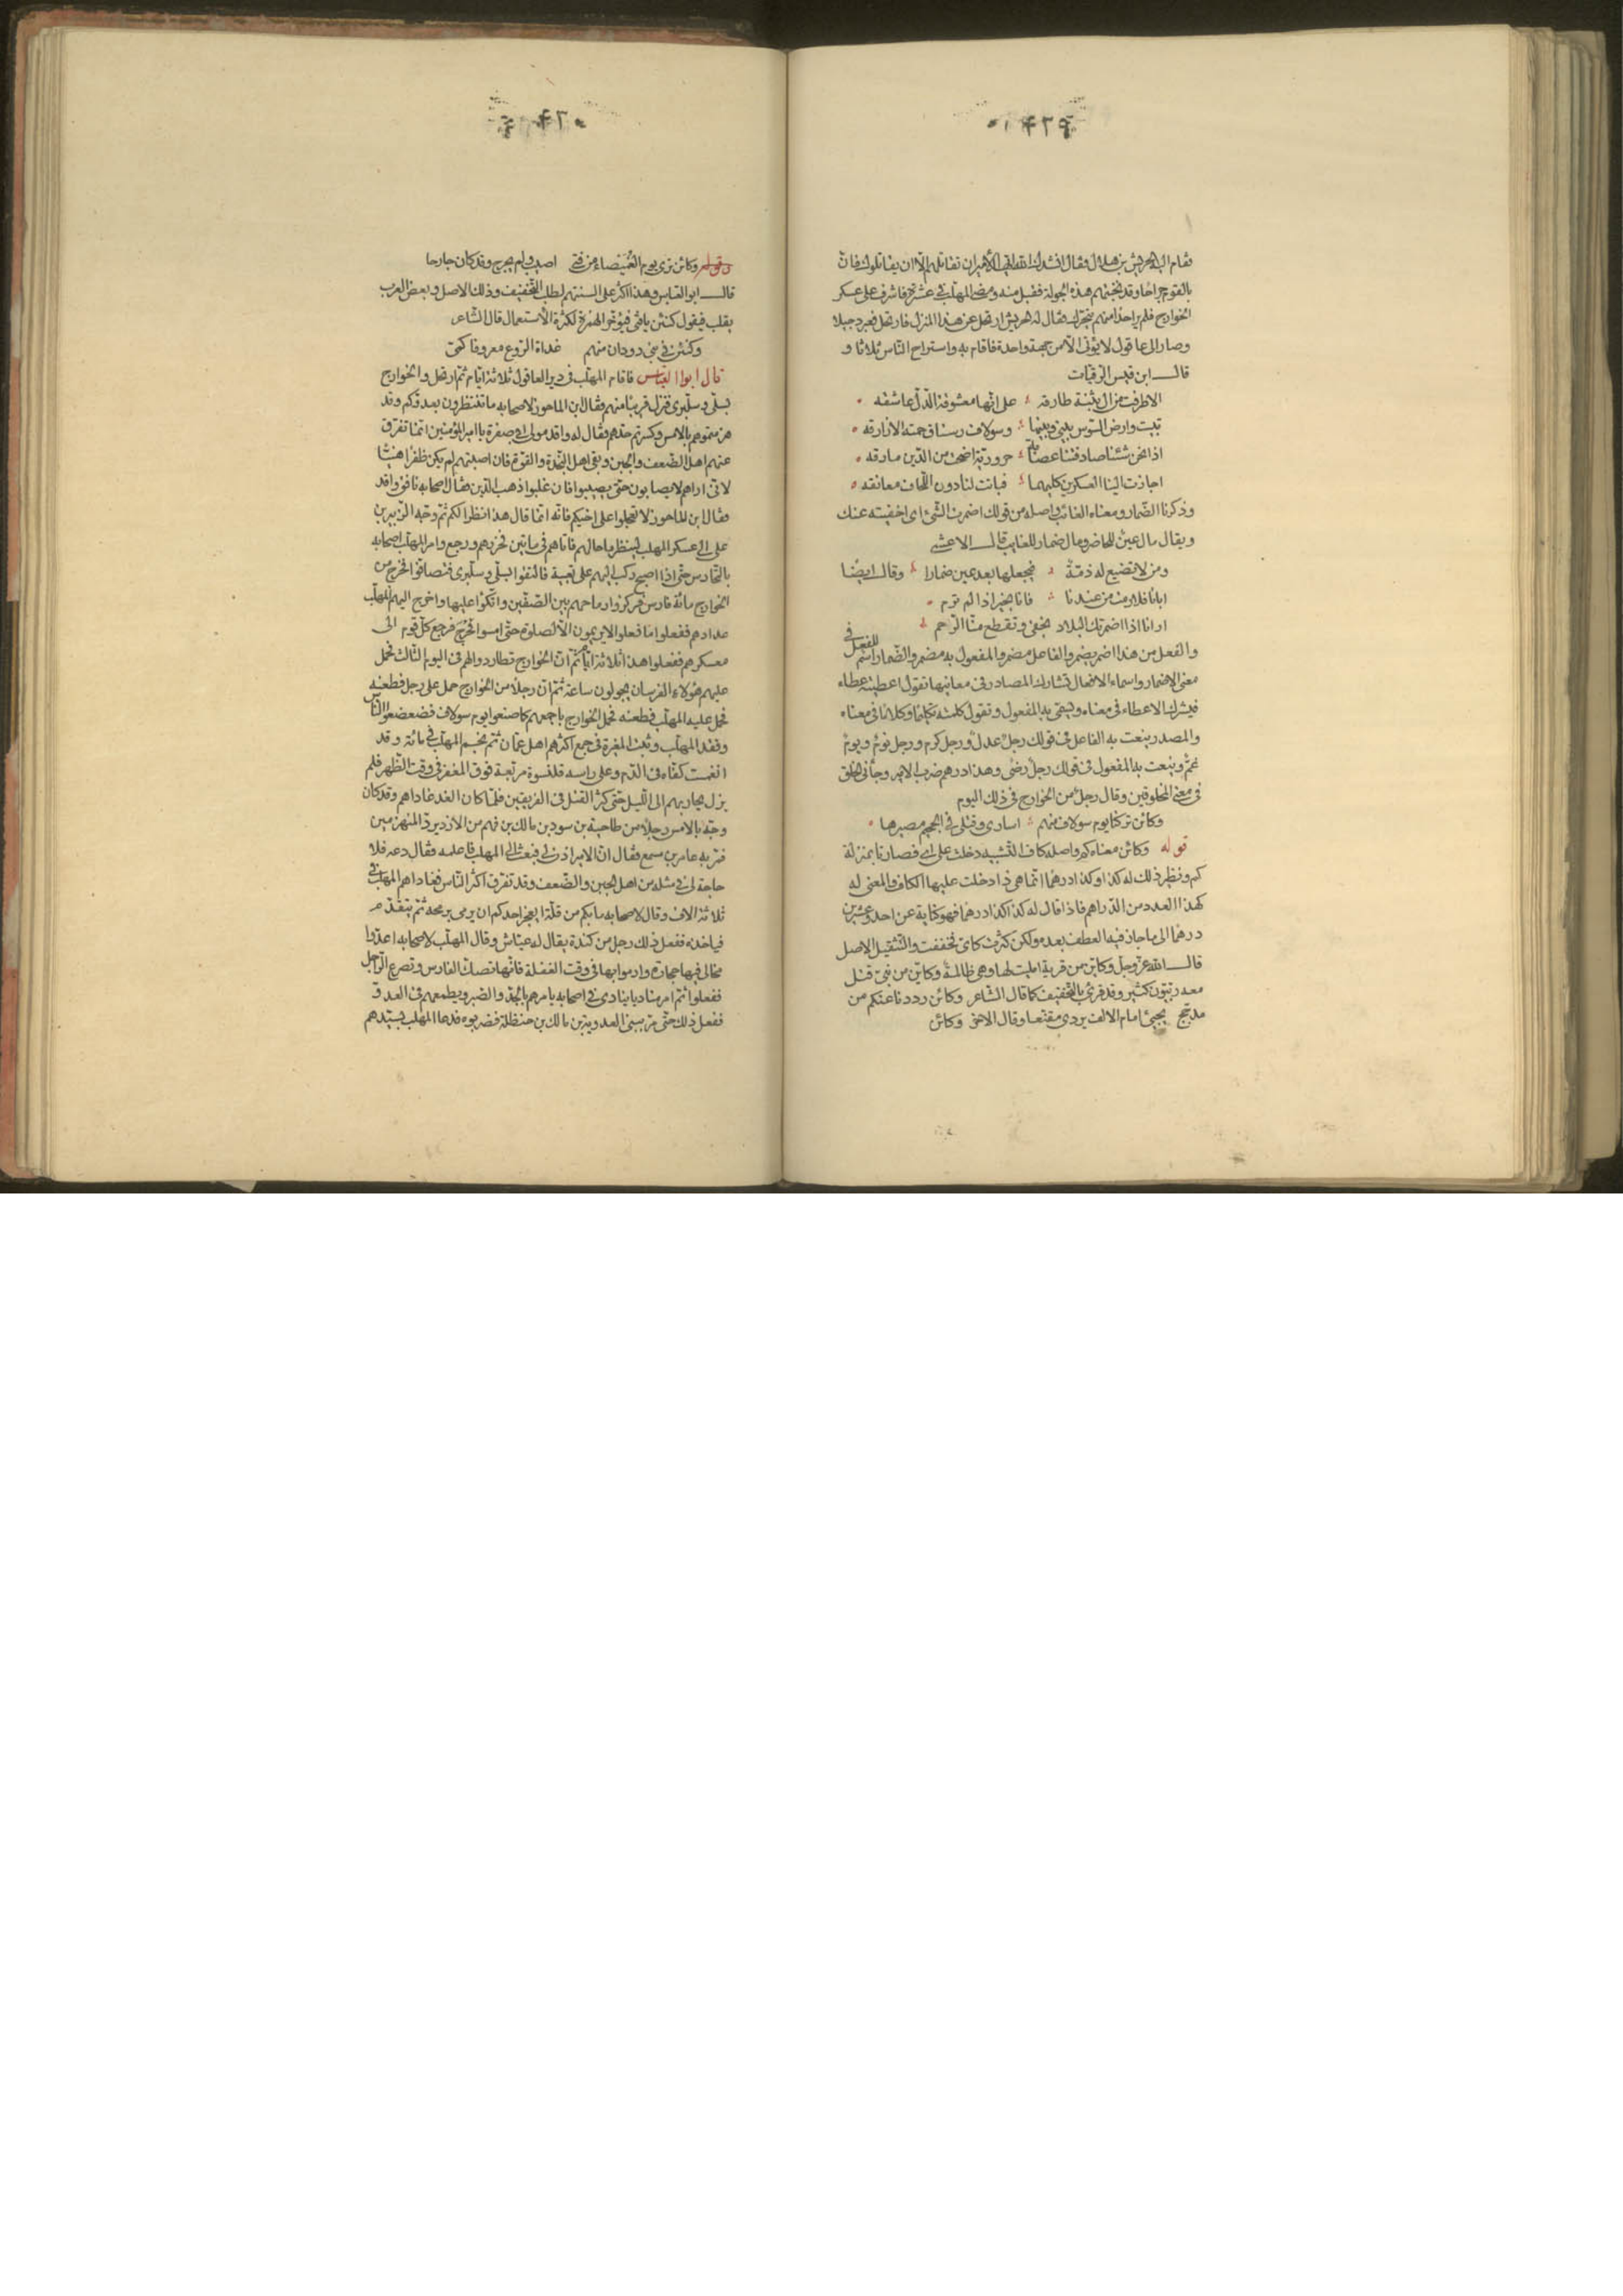 ٤٢٩
فقام اليه الحريش بن هلال فقال انشدك الله ايها الأمير ان تقاتلهم الّا ان يقاتلوك فانّ
بالقوم جراحا وقد اثخنتهم هذه الجولة فقبل منه ومضى المهلّب في عشرة فاشرف على عسكر
الخوارج فلم ير احدا منهم يتحرّك فقال له الحريش ارتحل عن هذا المنزل فارتحل فعبر دجيلا
وصار الى عاقول لا يؤتى الّا من جهة واحدة فاقام به واستراح النّاس ثلاثا و
قال ابن قيس الرّقيّات
الا طرقت من ال بثنة طارقه على انّها معشوقة الدّلّ عاشقه
تبيت وارض السّوس بيني وبينها وسولاف رستاق حمته الازارقه
اذا نحن شئنا صادفتنا عصابة حروريّة اضحت من الدّين مارقه
اجازت الينا العسكرين كليهما فباتت لنا دون اللّحاف معانقه
وذكرنا الضّمار ومعناه الغائب واصله من قولك اضمرت الشّئ اى اخفيته عنك
ويقال مال عين للحاضر ومال ضمار للغايب قال الاعشى
ومن لا تضيع له ذمّة فيجعلها بعد عين ضمارا وقال ايضا
ابانا فلا رمت من عندنا فانا بخير اذا لم ترم
ارانا اذا اضمرتك البلاد نجفى وتقطع منّا الرّحم
والفعل من هذا اضمر يضمر والفاعل مضمر والمفعول به مضمر والضّمار اسم للفعل في
معنى الاضمار واسماء الافعال تشارك المصادر في معانيها تقول اعطيته عطاء
فيشرك الاعطاء في معناه ويسمّى به المفعول وتقول كلمته تكليما وكلاما في معناه
والمصدر ينعت به الفاعل في قولك رجلٌ عدلٌ ورجل كرم ورجل نومٌ ويومٌ
غمٌّ وينعت به المفعول في قولك رجلٌ رضى وهذا درهم ضرب الامير وجاءني الخلق
في معنى المخلوقين وقال رجلٌ من الخوارج في ذلك اليوم
وكائن تركنا يوم سولاف منهم اسارى وقتلى في الجحيم مصيرها
قوله وكائن معناه كم واصله كاف التّشبيه دخلت على اى فصارتا بمنزلة
كم ونظير ذلك له كذا وكذا درهما انّما هي ذا دخلت عليها الكاف والمعنى له
كهذا العدد من الدّراهم فاذا قال له كذا كذا درهما فهو كناية عن احد وعشرين
درهما الى ما جاز فيه العطف بعده ولكن كثرت كاىّ فخففت والتّثقيل الاصل
قال الله عزّ وجلّ وكايّن من قرية امليت لها وهي ظالمةٌ وكايّن من نبيّ قتل
معه ربّيّون كثير وقد قرئ بالتّخفيف كما قال الشّاعر وكائن رددنا عنكم من
مدجّج يجئ امام الالف يردى مقنّعا وقال الاخر وكائن
٤٣٠
وقوله وكائن ترى يوم الغميصاء من فتى اصيب ولم يجرح وقد كان جارحا
قال ابو العبّاس وهذا اكثر على السنتهم لطلب التّخفيف وذلك الاصل وبعض العرب
يقلب فيقول كئن يا فتى فيؤخّر الهمزة لكثرة الاستعمال قال الشّاعر
وكئن في بني دودان منهم غداة الرّوع معروفا كمىّ
قال ابو العبّاس فاقام المهلّب في دير العاقول ثلاثة ايّام ثمّ ارتحل والخوارج
بسلّى وسلّبرى فنزل قريبا منهم فقال ابن الماحوز لاصحابه ما تنتظرون بعدوّكم وقد
هزمتموهم بالامس وكسرتم حدّهم فقال له واقد مولى ابي صفرة يا امير المؤمنين انّما تفرّق
عنهم اهل الضّعف والجبن وبقى اهل النّجدة والقوّة فان اصبتهم لم يكن ظفرا هنيئا
لانّى اراهم لا يصابون حتّى يصيبوا فان غلبوا ذهب الدّين فقال اصحابه نافق واقد
فقال ابن الماحوز لا تعجلوا على اخيكم فانّه انّما قال هذا نظرا لكم ثمّ وجّه الزّبير بن
على الى عسكر المهلّب لينظر ما حالهم فاتاهم في مائتين فحزرهم ورجع وامر المهلّب اصحابه
بالتّحارس حتّى اذا اصبح ركب اليهم على تعبية فالتقوا بسلّى وسلّبرى فتصافّوا فخرج من
الخوارج مائة فارس فركزوا رماحهم بين الصّفّين واتّكؤا عليها واخرج اليهم المهلّب
عدادهم ففعلوا ما فعلوا لا يريمون الّا لصلوة حتّى امسوا فرجع كلّ قوم الى
معسكرهم ففعلوا هذا ثلاثة ايّام ثمّ انّ الخوارج تطاردوا لهم في اليوم الثّالث فحمل
عليهم هؤلاء الفرسان يجولون ساعة ثمّ انّ رجلا من الخوارج حمل على رجل فطعنه
فحمل عليه المهلّب فطعنه فحمل الخوارج باجمعهم كما صنعوا يوم سولاف فضعضعوا النّاس
وفقد المهلّب وثبت المغيرة في جمع اكثرهم اهل عمان ثمّ نجم المهلّب في مائة وقد
انغمست كفّاه في الدّم وعلى راسه قلنسوة مربّعة فوق المغفر في وقت الظّهر فلم
يزل يحاربهم الى اللّيل حتّى كثر القتل في الفريقين فلمّا كان الغد غاداهم وقد كان
وجّه بالامس رجلا من طاحية بن سود بن مالك بن فهم من الازد يردّ المنهزمين
فمرّ به عامر بن مسمع فقال انّ الامير اذن لي فبعث الى المهلّب فاعلمه فقال دعه فلا
حاجة لي في مثله من اهل الجبن والضّعف وقد تفرّق اكثر النّاس فغاداهم المهلّب في
ثلاثة الاف وقال لاصحابه ما بكم من قلّة ايعجز احدكم ان يرمى برمحه ثمّ يتقدّم
فياخذه ففعل ذلك رجل من كندة يقال له عيّاش وقال المهلّب لاصحابه اعدّوا
مخالي فيها حجارة وارموا بها في وقت الغفلة فانّها تصدّ الفارس وتصرع الرّاجل
ففعلوا ثمّ امر مناديا ينادى في اصحابه يامرهم بالجدّ والصّبر ويطمعهم في العدوّ
ففعل ذلك حتّى مرّ ببني العدويّة بن مالك بن حنظلة فضربوه فدعا المهلّب بسيّدهم